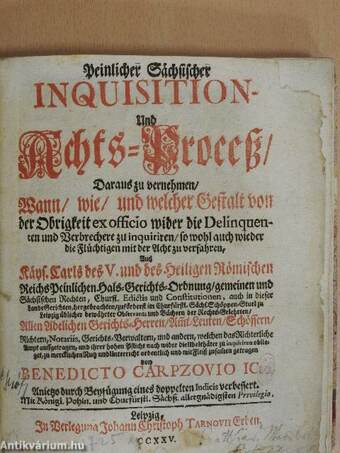 Peinlicher Sächsischer
INQUISITION-
Und
Achts-Proceß/
Daraus zu vernehmen/
Wann/ wie/ und welcher Gestalt von
der Obrigkeit ex officio wider die Delinquen-
ten und Verbrechere zu inquiriren/ so wohl auch wieder
die Flüchtigen mit der Acht zu verfahren,
Aus
Käys. Carls des V. und des Heiligen Römischen
Reichs Peinlichen Hals-Gerichts-Ordnung/ gemeinen und
Sächsischen Rechten, Churfl. Edictis und Constitutionen, auch in dieser
Lande Gerichten, hergebrachten, zuförderst im Churfürstl. Sächs. Schöppen-Stuel zu
Leipzig üblicher bewährter Observantz und Büchern der Rechts-Gelehrten/
Allen Adelichen Gerichts-Herren/ Amt-Leuten/ Schössern/
Richtern, Notarien, Gerichts-Verwaltern, und andern, welchen das Richterliche
Amt aufgetragen, und ihrer hohen Pflicht nach wider die Übelthäter zu inquiriren oblie-
get, zu mercklichen Nutz und Unterricht ordentlich und mit Fleiß zusammen getragen
von
BENEDICTO CARPZOVIO IC
Anietzo durch Beyfügung eines doppelten Indicis verbessert.
Mit Königl. Pohln. und Churfürstl. Sächs. allergnädigsten Privilegio.
Leipzig,
In Verlegung Johann Christoph TARNOVII Erben,
CCXXV.
antikvarium.hu
© Antikvárium.hu